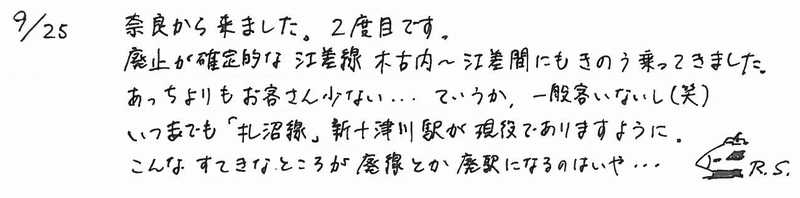 9/25 奈良から来ました。2度目です。
廃止が確定的な江差線 木古内～江差間にもきのう乗ってきました。
あっちよりもお客さん少ない…ていうか、一般客いないし(笑)
いつまでも「札沼線」新十津川駅が現役でありますように。
こんなすてきなところが廃線とか廃駅になるのはいや…
R.S.